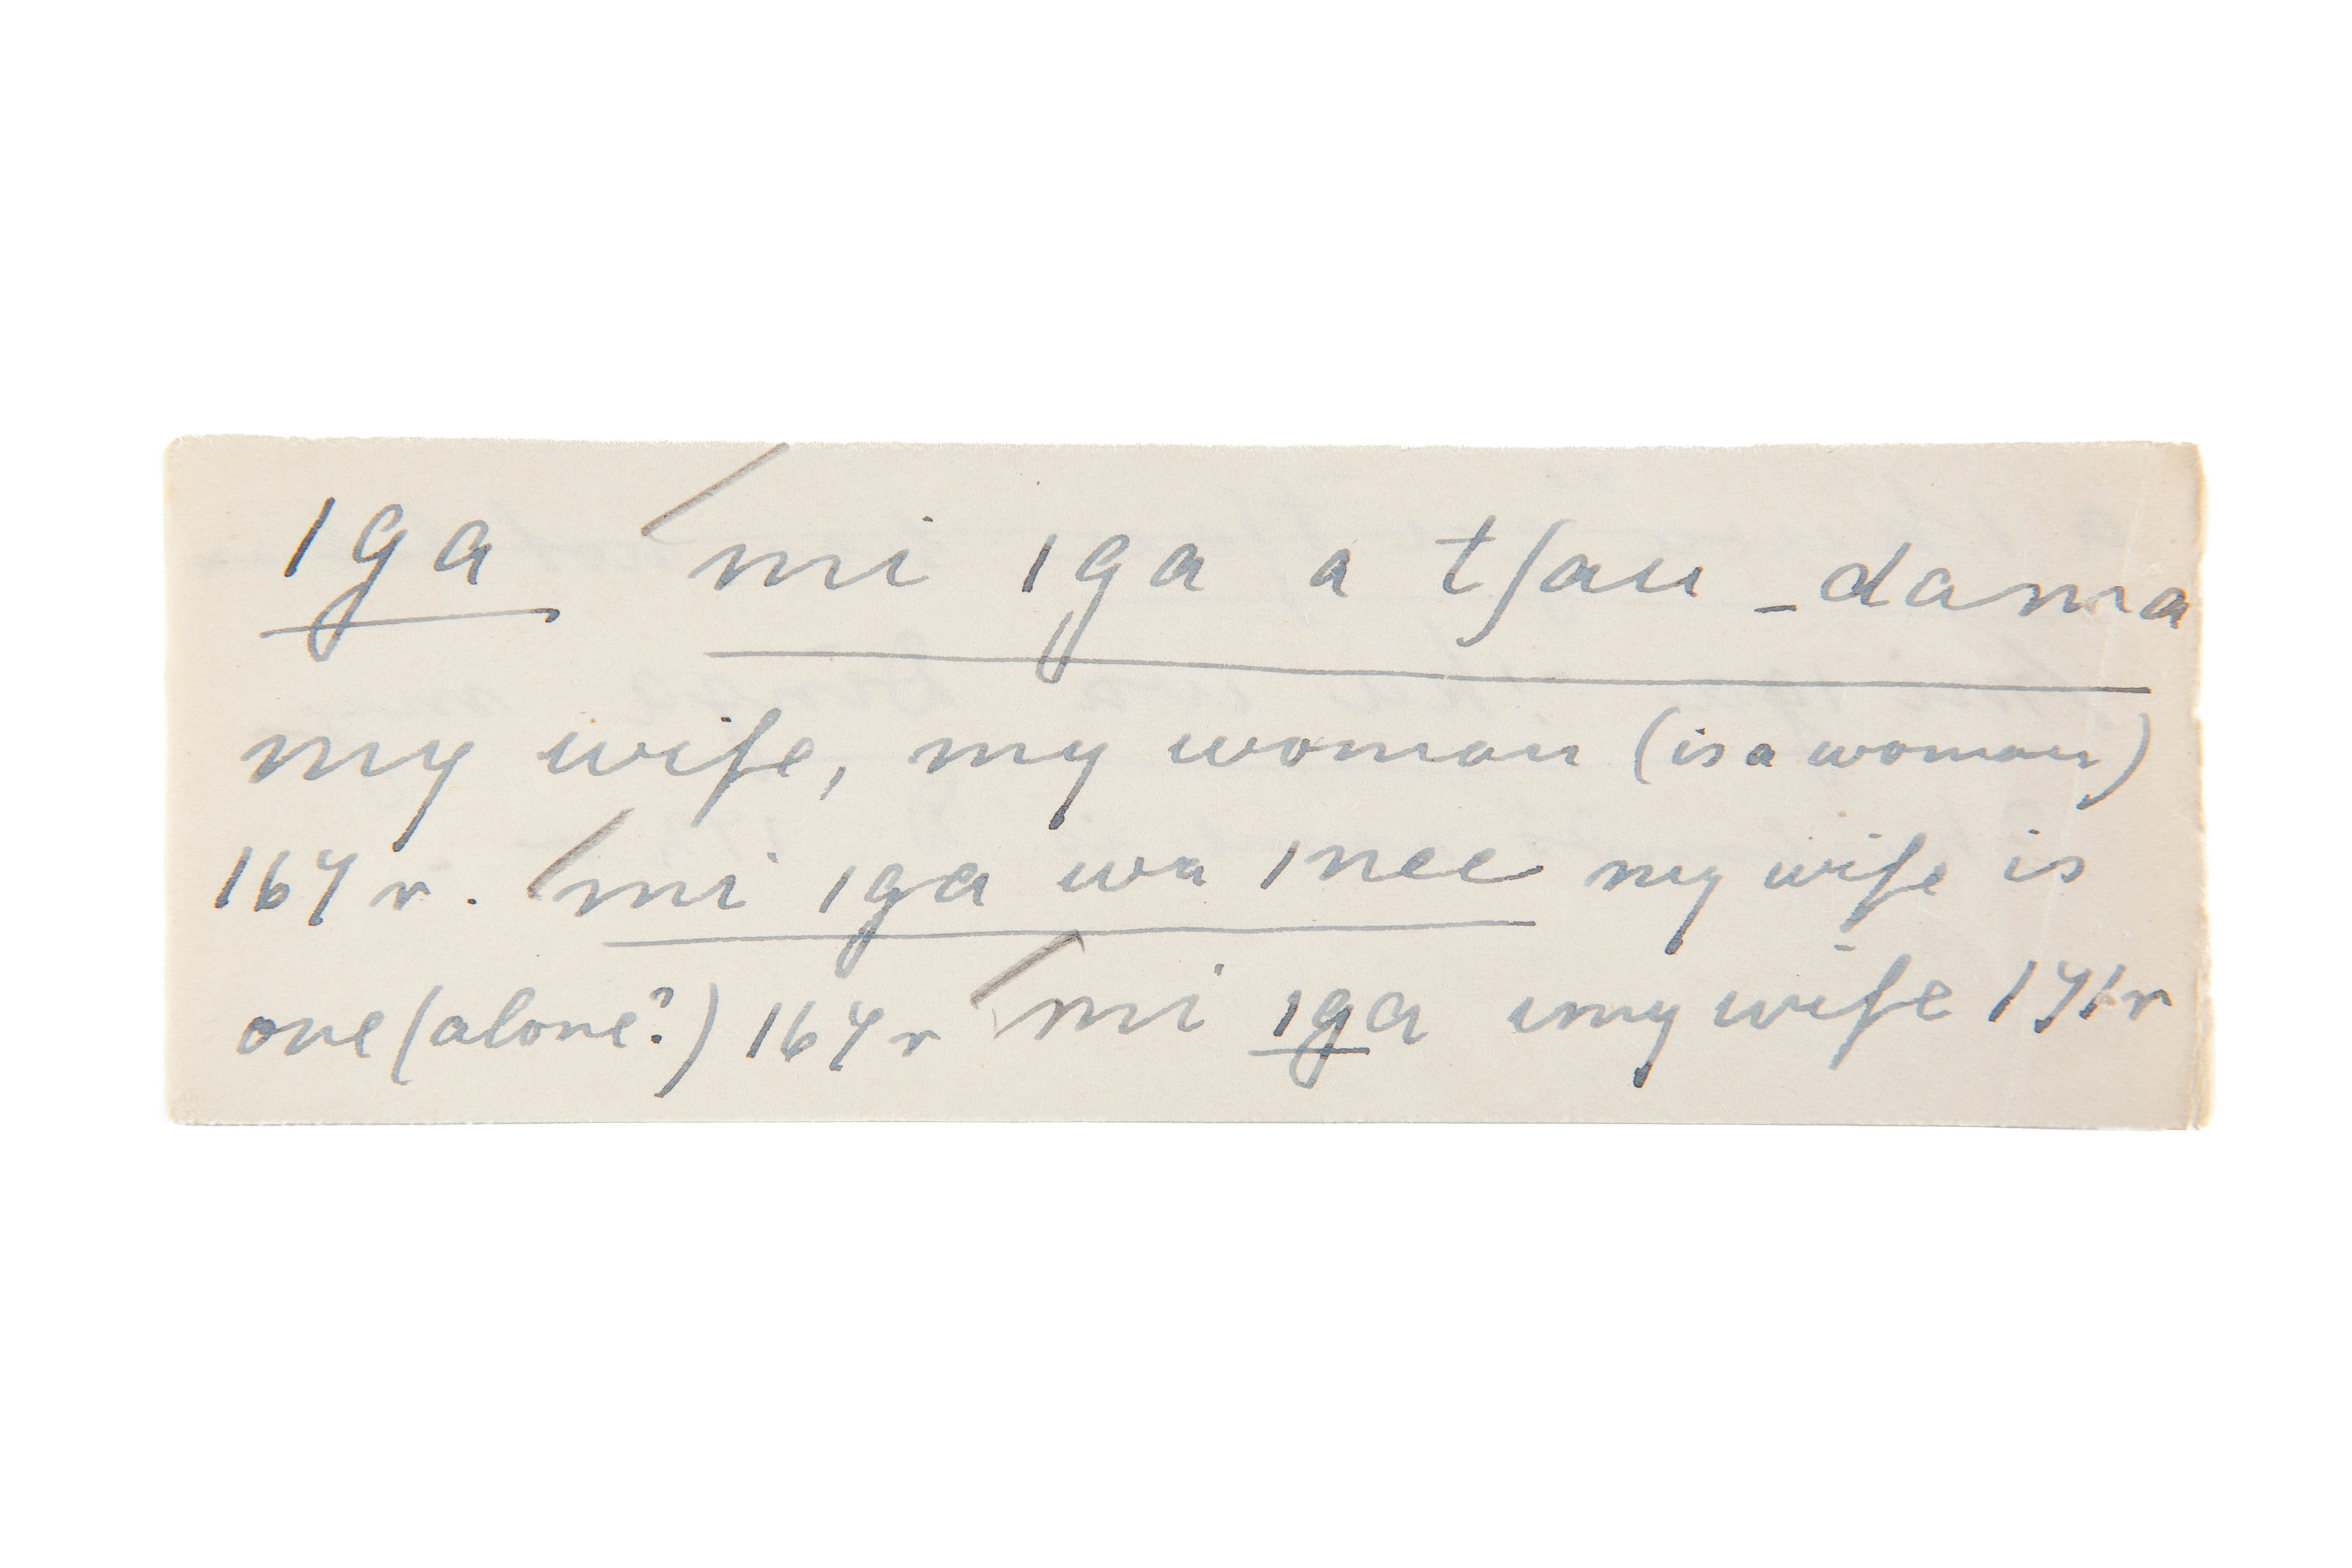 ıga mi ıga a tʃau _dama
my wife, my woman (is a woman)
167 r. mi ıga wa ınee my wife is
one (alone?) 167 r mi ıga my wife 171 r